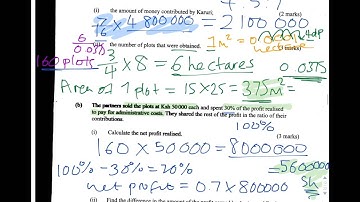 (i) the amount of money contributed by Karuri; (2 marks)
7/16 × 4 800 000 = 2 100 000
1m² =
the number of plots that were obtained. (3 marks)
6
0.0375
160 plots 3/4 × 8 = 6 hectares 0.0375
Area of 1 plot = 15×25 = 375m²
(b) The partners sold the plots at Ksh 50 000 each and spent 30% of the profit realised
to pay for administrative costs. They shared the rest of the profit in the ratio of their
contributions. 100%
(i) Calculate the net profit realised. (3 marks)
160 × 50000 = 8000000
100% - 30% = 70%
5600000
sh
net profit = 0.7 × 800000
(ii) Find the difference in the amount of the